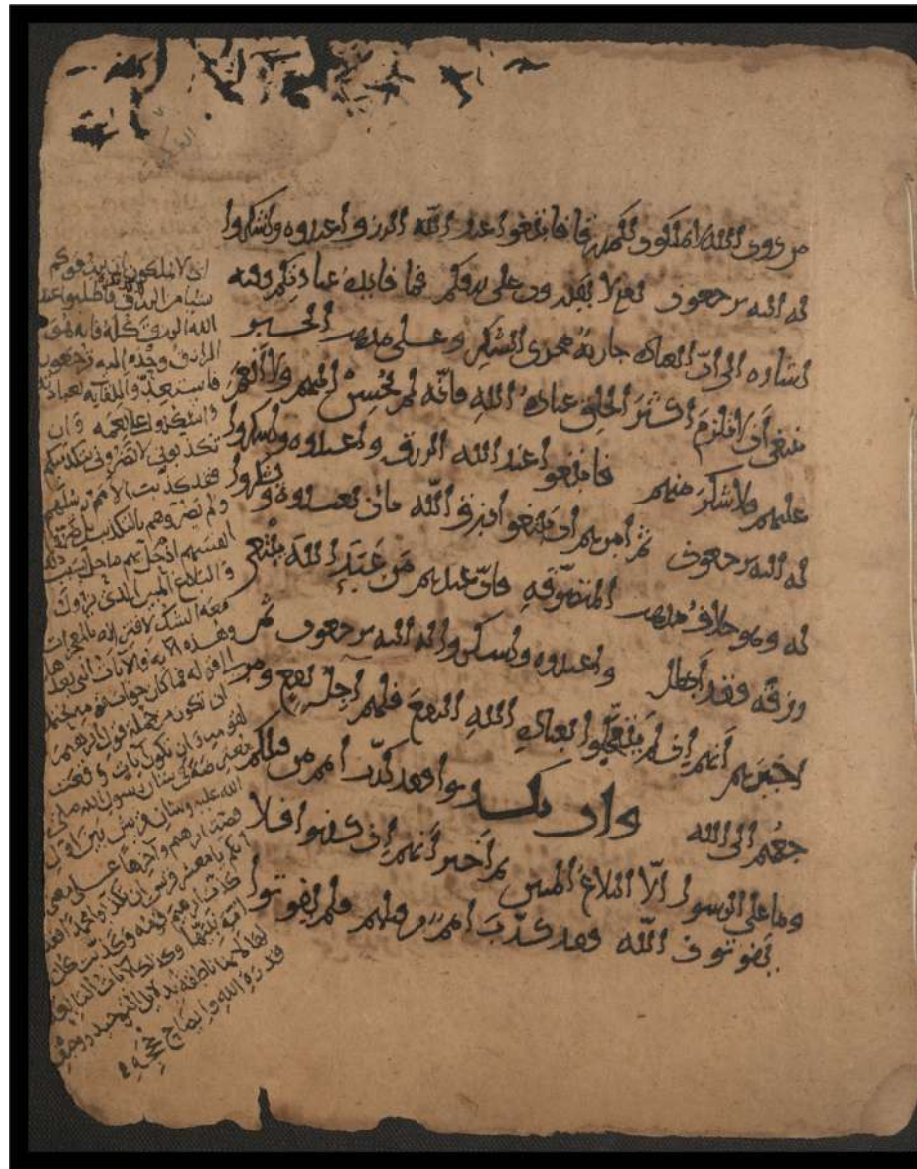 من دون الله لا يملكون لكم رزقا فابتغوا عند الله الرزق واعبدوه واشكروا
له اليه ترجعون نعم لا يقدرون على رزقكم فما فايدة عبادتكم وفيه
اشاره الى ان العباده جارية مجرى الشكر وعلى مذهب
ينبغي أن لا تلزم اكثر الخلق عبادة الله فانه لم يحسن اليهم ولا أنعم
عليهم فلا شكر منهم فابتغوا عند الله الرزق واعبدوه واشكروا
له اليه ترجعون ثم امرهم ان يبتغوا الرزق الله بان يعبدوه ويشكروا
له وهو خلاف مذهب المتصوفه فان عندهم من عبد الله يبتغي
رزقه فقد أبطل واعبدوه واشكروا له اليه ترجعون ثم
اخبرهم أنهم ان لم يتعجلوا بعبادة الله النفع فلهم اجل نفع
جعهم الى الله وان تكذبوا فقد كذب امم من قبلكم
وما على الرسول الا البلاغ المبين ثم أخبر أنهم ان كذبوا فلا
يفوتون الله فقد كذب امم من قبلهم فلم يفوتوا
اي لا يملكون ان يرزقوكم
شيئا من الرزق فاطلبوا عند
الله الرزق كله فانه هو
الرازق وحده اليه ترجعون
فاستعدوا للقايه بعبادته
واشكروا على نعمه وان
تكذبوني لا تضروني بتكذيبكم
فقد كذبت الامم رسلهم
ولم يضروهم بالتكذيب بل ضروا
انفسهم اذ حل بهم ما حل بسبب ذلك
والبلاغ المبين الذي يزول
معه الشك لاقترانه بالمعجزات
وهذه الاية والايات التي بعدها
الى قوله فما كان جواب قومه محتملة
ان تكون من جملة قول ابرهيم
لقومه وان تكون ايات وقعت
معترضة في شان رسول الله صلى
الله عليه وشان قريش بين اول
قصة ابرهيم وآخرها على معنى
انكم يا معشر قريش ان تكذبوا محمدا فقد
كذب ابرهيم قومه وكذبت كل
امة نبيها وكذلك الايات التابعة
لها لأنها ناطقة بدلايل التوحيد ووصف
قدرة الله وايضاح حججه